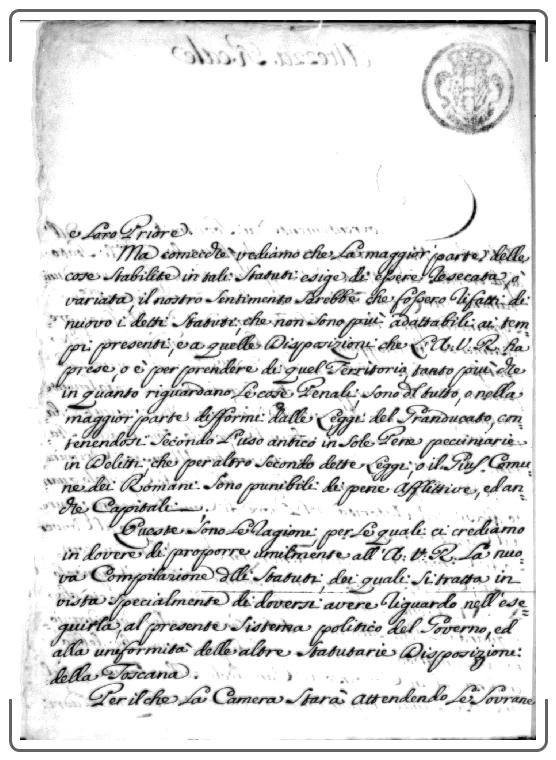 e Loro Priore.
Ma comecchè vediamo che La maggior parte delle
cose Stabilite in tali Statuti esige di essere resecata, o
variata, il nostro Sentimento Sarebbe che fossero rifatti di
nuovo i detti Statuti, che non Sono più adattabili ai tem-
pi presenti, e a quelle Disposizioni che L'A. V. R. ha
prese, o è per prendere di quel Territorio, tanto più che
in quanto riguardano Le cose Penali Sono del tutto, o nella
maggior parte difformi dalle Leggi del Granducato, con-
tenendosi Secondo L'uso antico in Sole Pene pecuniarie
in Delitti, che per altro Secondo dette Leggi, o il Jus Comu-
ne dei Romani Sono punibili di pene Afflittive, ed an-
che Capitali.
Queste Sono Le ragioni per Le quali ci crediamo
in dovere di proporre umilmente all'A. V. R. La nuo-
va Compilazione delli Statuti, dei quali Si tratta in
vista Specialmente di doversi avere riguardo nell'ese-
guirla, al presente Sistema politico del Governo, ed
alla uniformità delle altre Statutarie Disposizioni
della Toscana.
Per il che La Camera Starà Attendendo Le Sovrane